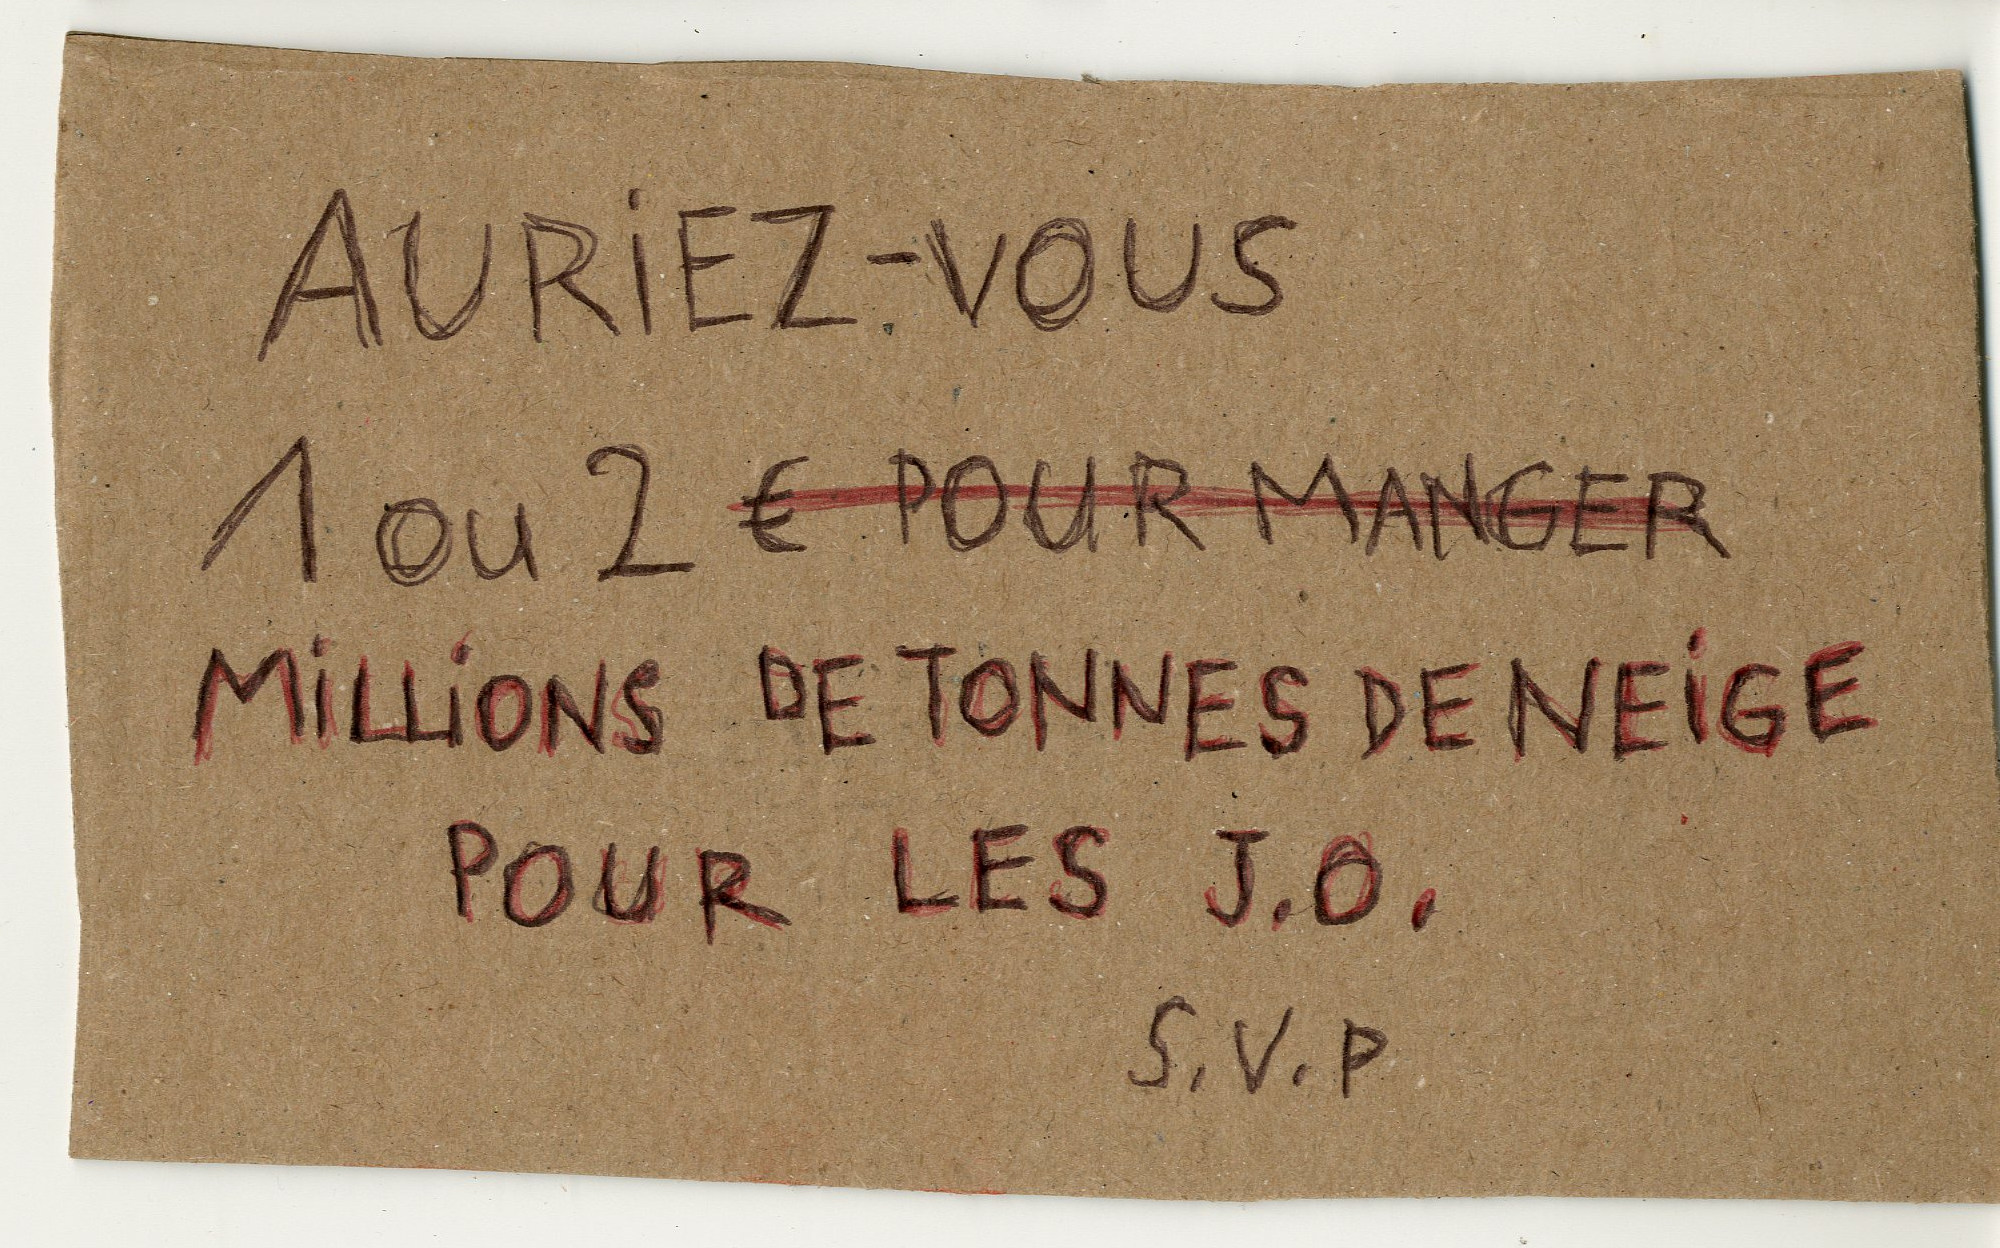 AURiEZ-VOUS
1 ou 2 € POUR MANGER
MiLLiONS DE TONNES DE NEiGE
POUR LES J.O.
S.V.P